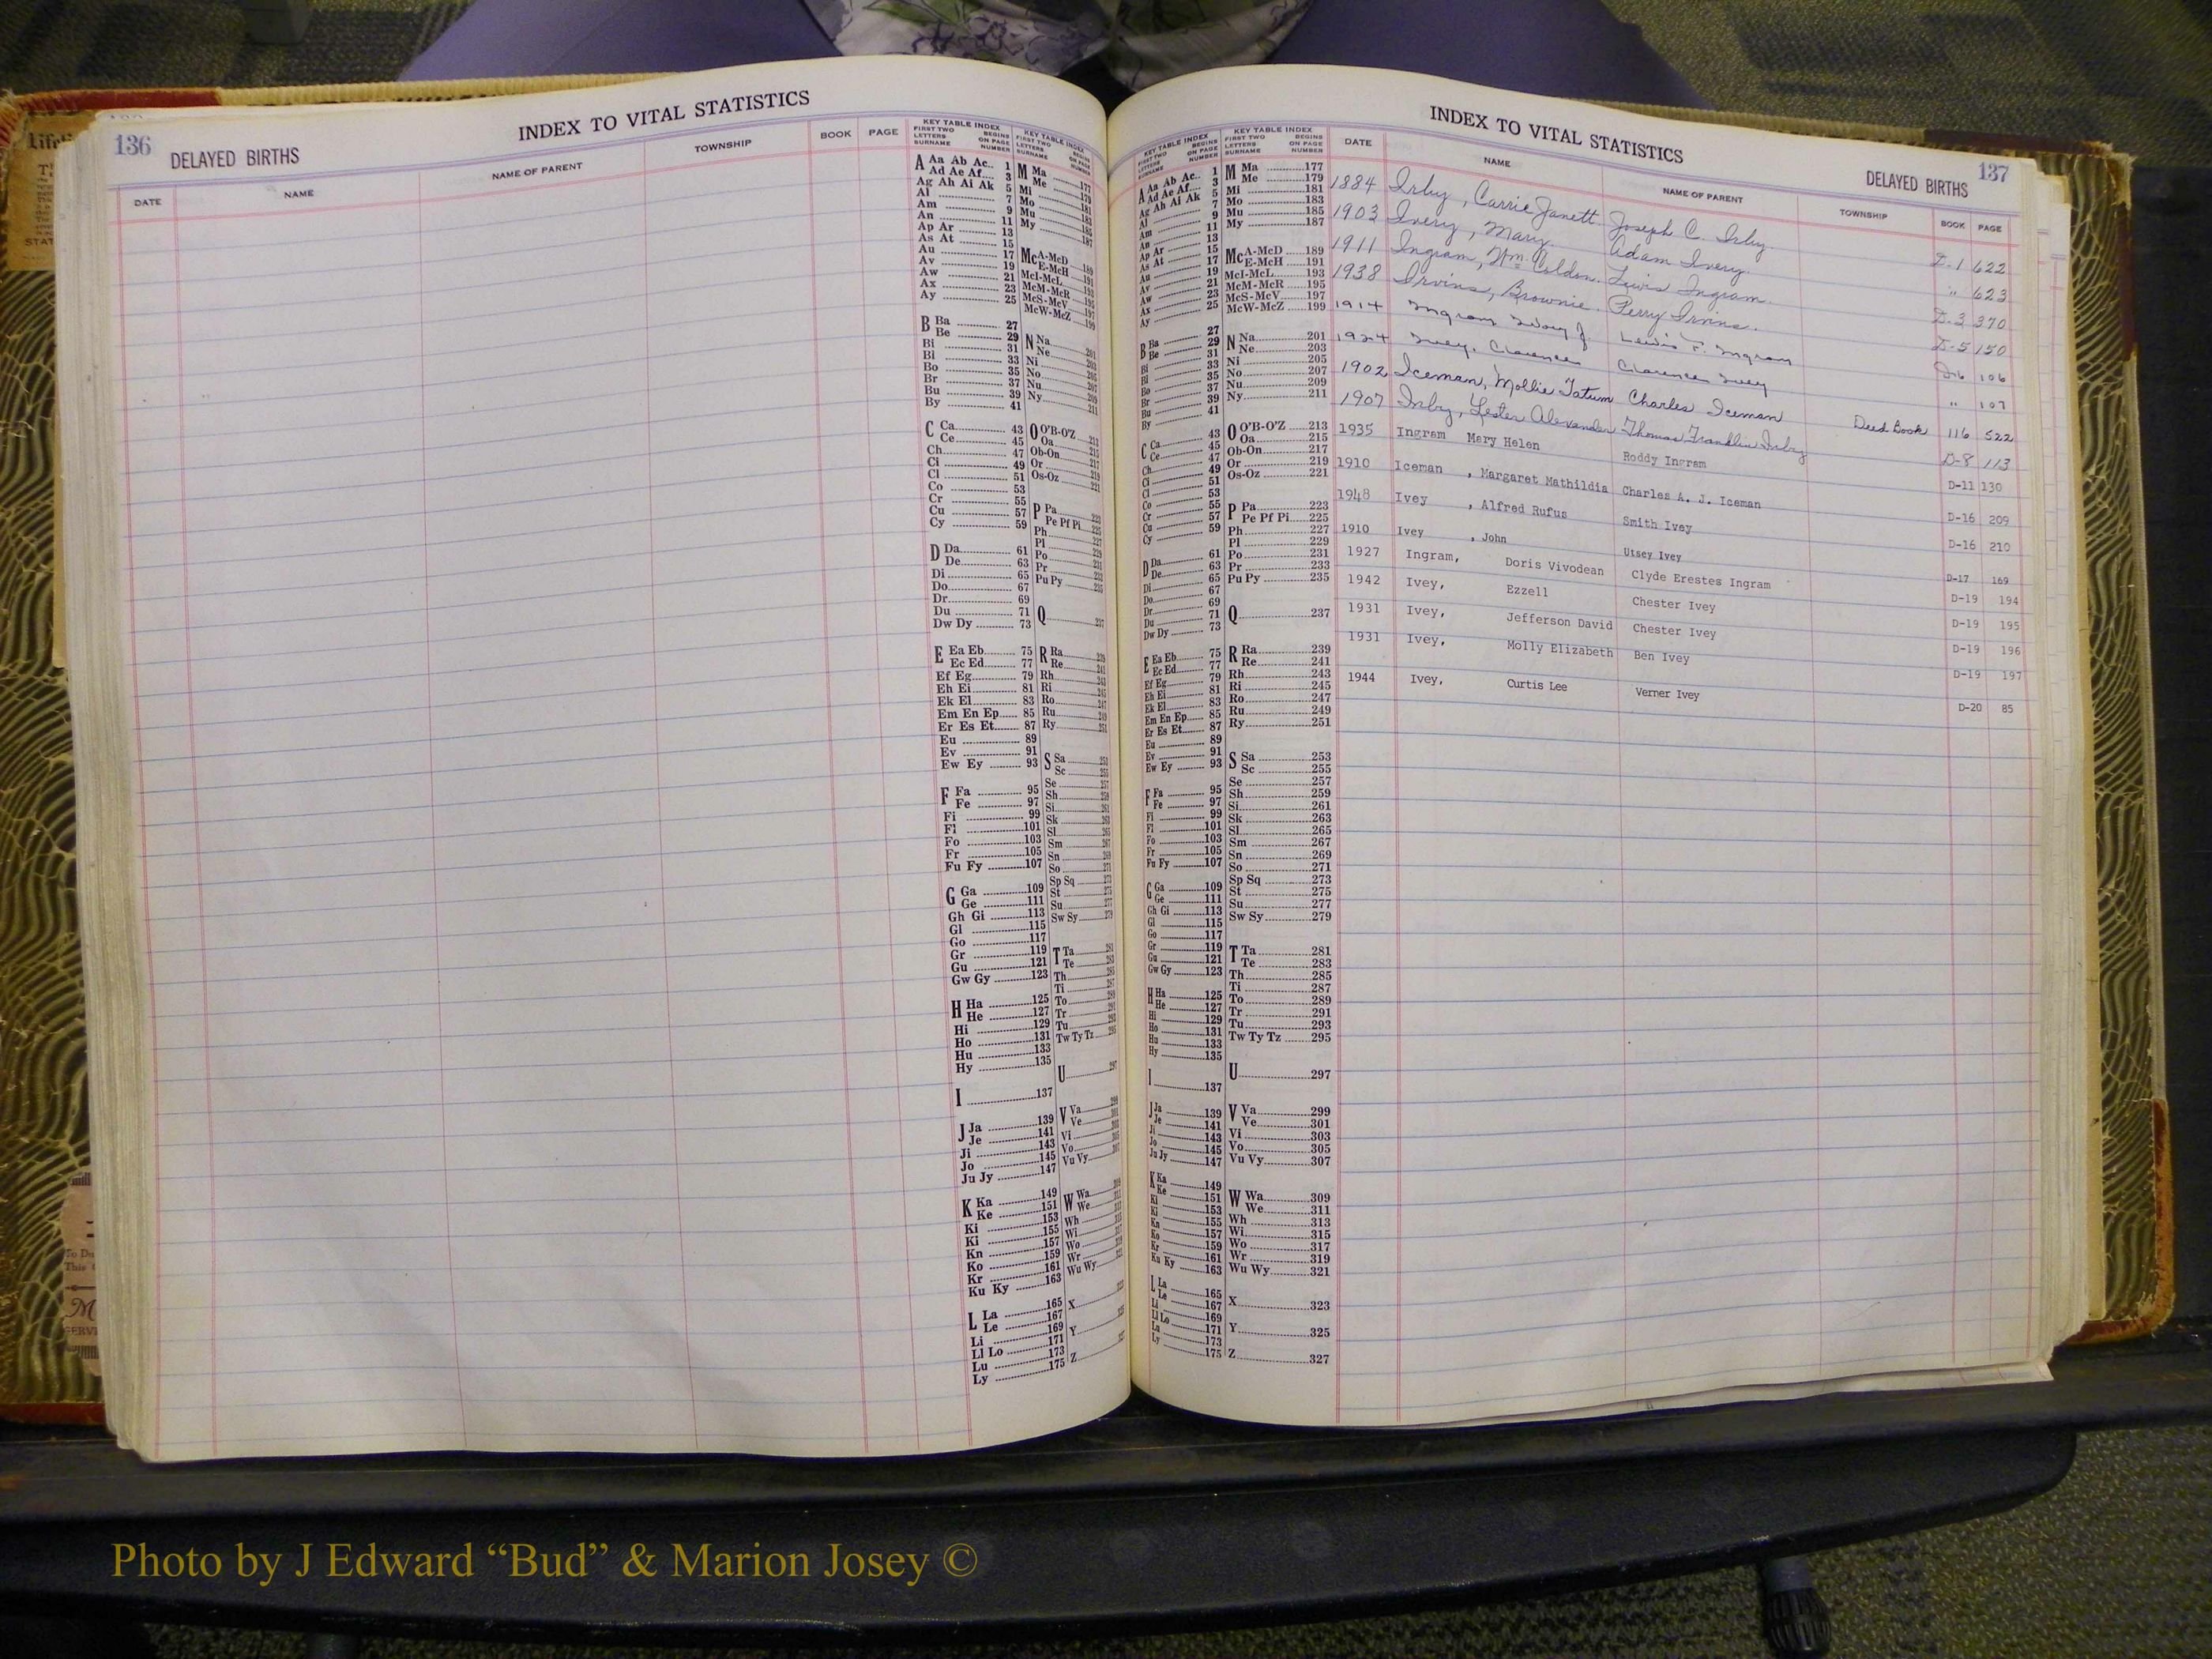 136
INDEX TO VITAL STATISTICS
DELAYED BIRTHS
DATE NAME NAME OF PARENT TOWNSHIP BOOK PAGE
KEY TABLE INDEX
FIRST TWO LETTERS SURNAME BEGINS ON PAGE NUMBER
A Aa Ab Ac 1
Ad Ae Af 3
Ag Ah Ai Ak 5
Al 7
Am 9
An 11
Ap Ar 13
As At 15
Au 17
Av 19
Aw 21
Ax 23
Ay 25
B Ba 27
Be 29
Bi 31
Bl 33
Bo 35
Br 37
Bu 39
By 41
C Ca 43
Ce 45
Ch 47
Ci 49
Cl 51
Co 53
Cr 55
Cu 57
Cy 59
D Da 61
De 63
Di 65
Do 67
Dr 69
Du 71
Dw Dy 73
E Ea Eb 75
Ec Ed 77
Ef Eg 79
Eh Ei 81
Ek El 83
Em En Ep 85
Er Es Et 87
Eu 89
Ev 91
Ew Ey 93
F Fa 95
Fe 97
Fi 99
Fl 101
Fo 103
Fr 105
Fu Fy 107
G Ga 109
Ge 111
Gh Gi 113
Gl 115
Go 117
Gr 119
Gu 121
Gw Gy 123
H Ha 125
He 127
Hi 129
Ho 131
Hu 133
Hy 135
I 137
J Ja 139
Je 141
Ji 143
Jo 145
Ju Jy 147
K Ka 149
Ke 151
Ki 153
Ki 155
Kn 157
Ko 159
Kr 161
Ku Ky 163
L La 165
Le 167
Li 169
Ll Lo 171
Lu 173
Ly 175
INDEX TO VITAL STATISTICS
137
DELAYED BIRTHS
KEY TABLE INDEX
FIRST TWO LETTERS SURNAME BEGINS ON PAGE NUMBER
M Ma 177
Me 179
Mi 181
Mo 183
Mu 185
My 187
Mc A-McD 189
E-McH 191
McI-McL 193
McM-McR 195
McS-McV 197
McW-McZ 199
N Na 201
Ne 203
Ni 205
No 207
Nu 209
Ny 211
O O'B-O'Z 213
Oa 215
Ob-On 217
Or 219
Os-Oz 221
P Pa 223
Pe Pf Pi 225
Ph 227
Pl 229
Po 231
Pr 233
Pu Py 235
Q 237
R Ra 239
Re 241
Rh 243
Ri 245
Ro 247
Ru 249
Ry 251
S Sa 253
Sc 255
Se 257
Sh 259
Si 261
Sk 263
Sl 265
Sm 267
Sn 269
So 271
Sp Sq 273
St 275
Su 277
Sw Sy 279
T Ta 281
Te 283
Th 285
Ti 287
To 289
Tr 291
Tu 293
Tw Ty Tz 295
U 297
V Va 299
Ve 301
Vi 303
Vo 305
Vu Vy 307
W Wa 309
We 311
Wh 313
Wi 315
Wo 317
Wr 319
Wu Wy 321
X 323
Y 325
Z 327
DATE NAME NAME OF PARENT TOWNSHIP BOOK PAGE
1884 Irby, Carrie Janett Joseph C. Irby D-1 622
1903 Ivery, Mary Adam Ivery " 623
1911 Ingram, Wm. Coldon Lewis Ingram D-3 370
1938 Irvins, Brownie Perry Irvins D-5 150
1914 Ingram J. Lewis F. Ingram D-6 106
1924 Ivey, Clarence Clarence Ivey " 107
1902 Iceman, Mollie Tatum Charles Iceman Deed Book 116 522
1907 Irby, Lester Alexander Thomas Franklin Irby D-8 113
1935 Ingram Mary Helen Roddy Ingram D-11 130
1910 Iceman , Margaret Mathildia Charles A. J. Iceman D-16 209
1948 Ivey , Alfred Rufus Smith Ivey D-16 210
1910 Ivey , John Utsey Ivey D-17 169
1927 Ingram, Doris Vivodean Clyde Erestes Ingram D-19 194
1942 Ivey, Ezzell Chester Ivey D-19 195
1931 Ivey, Jefferson David Chester Ivey D-19 196
1931 Ivey, Molly Elizabeth Ben Ivey D-19 197
1944 Ivey, Curtis Lee Verner Ivey D-20 85
Photo by J Edward “Bud” & Marion Josey ©